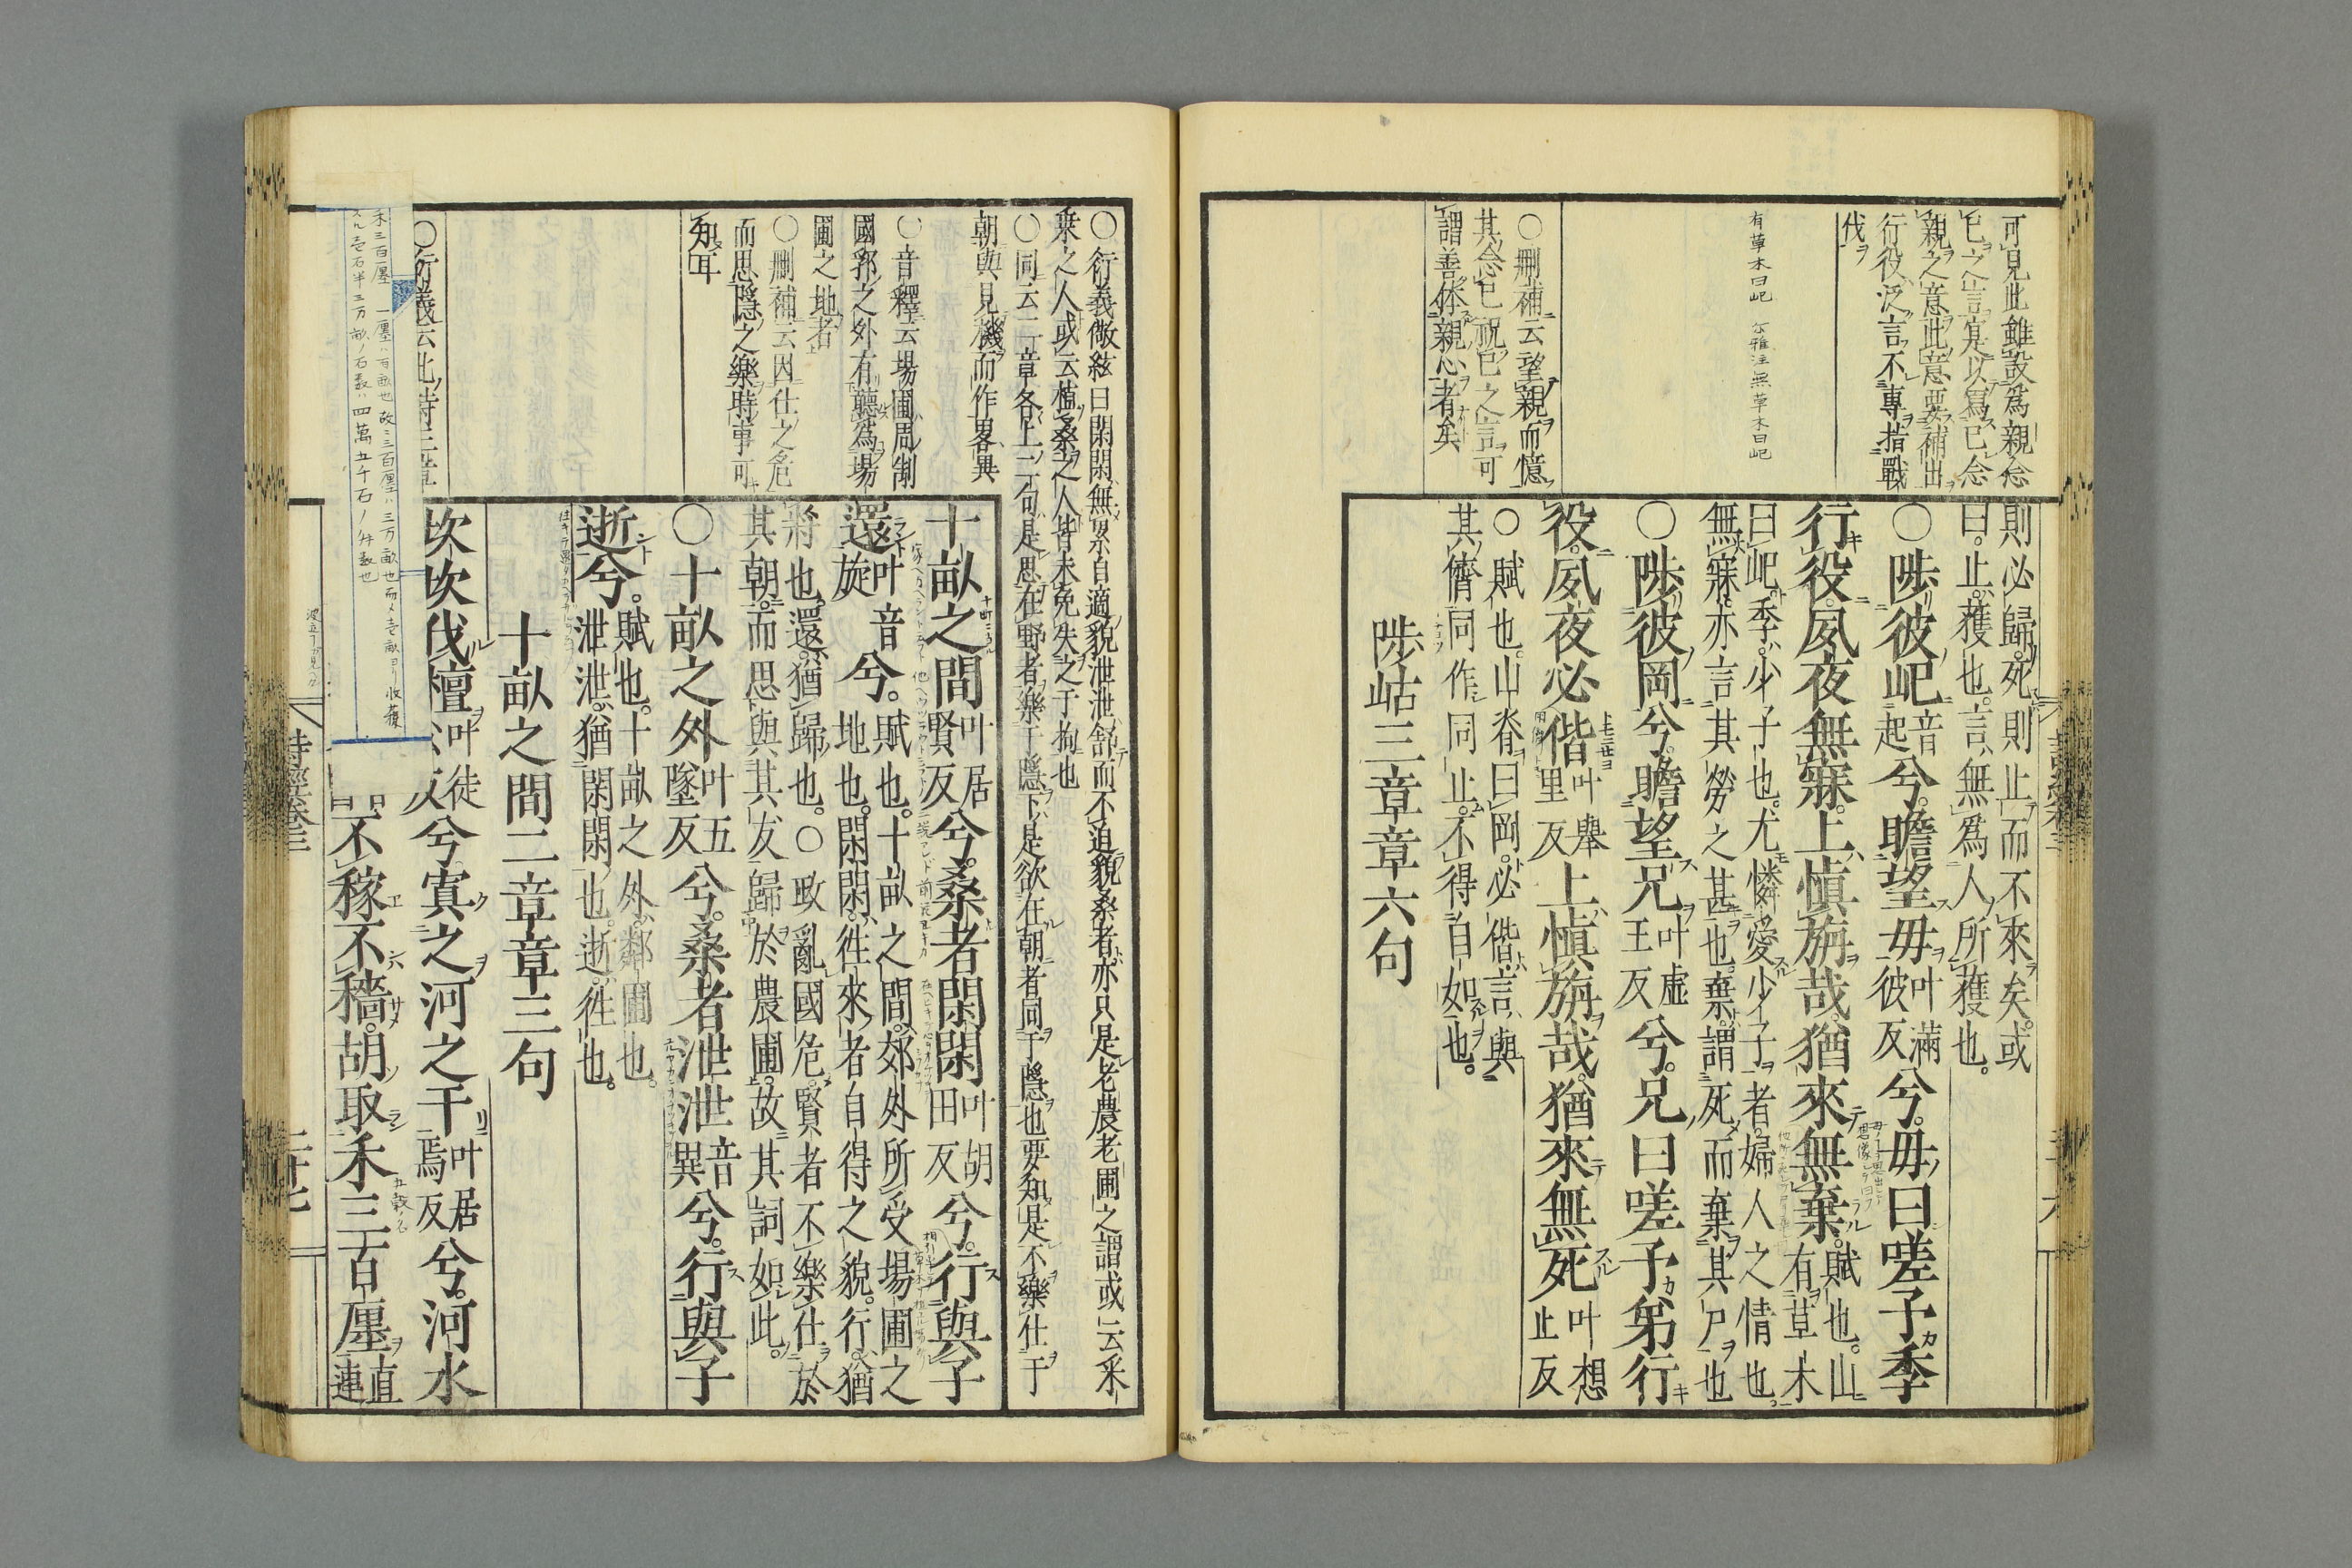 可見此雖設爲親念
已之言寔以爲已念
親之意此意要補出
行役泛言不專指戰
伐
有草木曰屺 尓雅注無草木曰屺
○刪補云望親而憶
其念已祝已之言可
謂善体親心者矣
則必歸死則止而不來矣或
曰止獲也言無爲人所獲也
○陟彼屺音起兮瞻望母叶滿彼反兮母曰嗟予季
行役夙夜無寐上愼旃哉猶來無棄賦也山有草木
曰屺季少子也尤憐愛少子者婦人之情也
無寐亦言其勞之甚也棄謂死而棄其尸也
○陟彼岡兮瞻望兄叶虛王反兮兄曰嗟予弟行
役夙夜必偕叶舉里反上愼旃哉猶來無死叶想止反
○賦也山脊曰岡必偕言與
其儕同作同止不得自如也
陟岵三章章六句
○衍義倣絃曰閑閑無累自適貌泄泄舒而不迫貌桑者亦只是老農老圃之謂或云采
桒之人或云植桑之人皆未免失之于拘也
○同云二章各上二句是思在野者樂于隱下是欲在朝者同于隱也要知是不樂仕于
朝與見機而作畧異
○音釋云場圃周制
國郛之外有廛爲場
圃之地者
○刪補云因仕之危
而思隱之樂時事可
知耳
○衍義云此詩三章
十畝之間叶居賢反兮桑者閑閑叶胡田反兮行與子
還叶音旋兮賦也十畝之間郊外所受場圃之
地也閑閑徃來者自得之貌行猶
將也還猶歸也○政亂國危賢者不樂仕於
其朝而思與其友歸於農圃故其詞如此
○十畝之外叶五墜反兮桑者泄泄音異兮行與子
逝兮賦也十畝之外鄰圃也
泄泄猶閑閑也逝徃也
十畝之間二章章三句
坎坎伐檀叶徒反兮寘之河之干叶居焉反兮河水
不稼不穡胡取禾三百廛直連
禾三百廛 一廛ハ百畝也故ニ三百廛ハ三万畝也而〆壱畝ヨリ收穫
スル壱石半三万畝ノ石数ハ四萬五千石ノ舛数也
詩經卷三
二十七